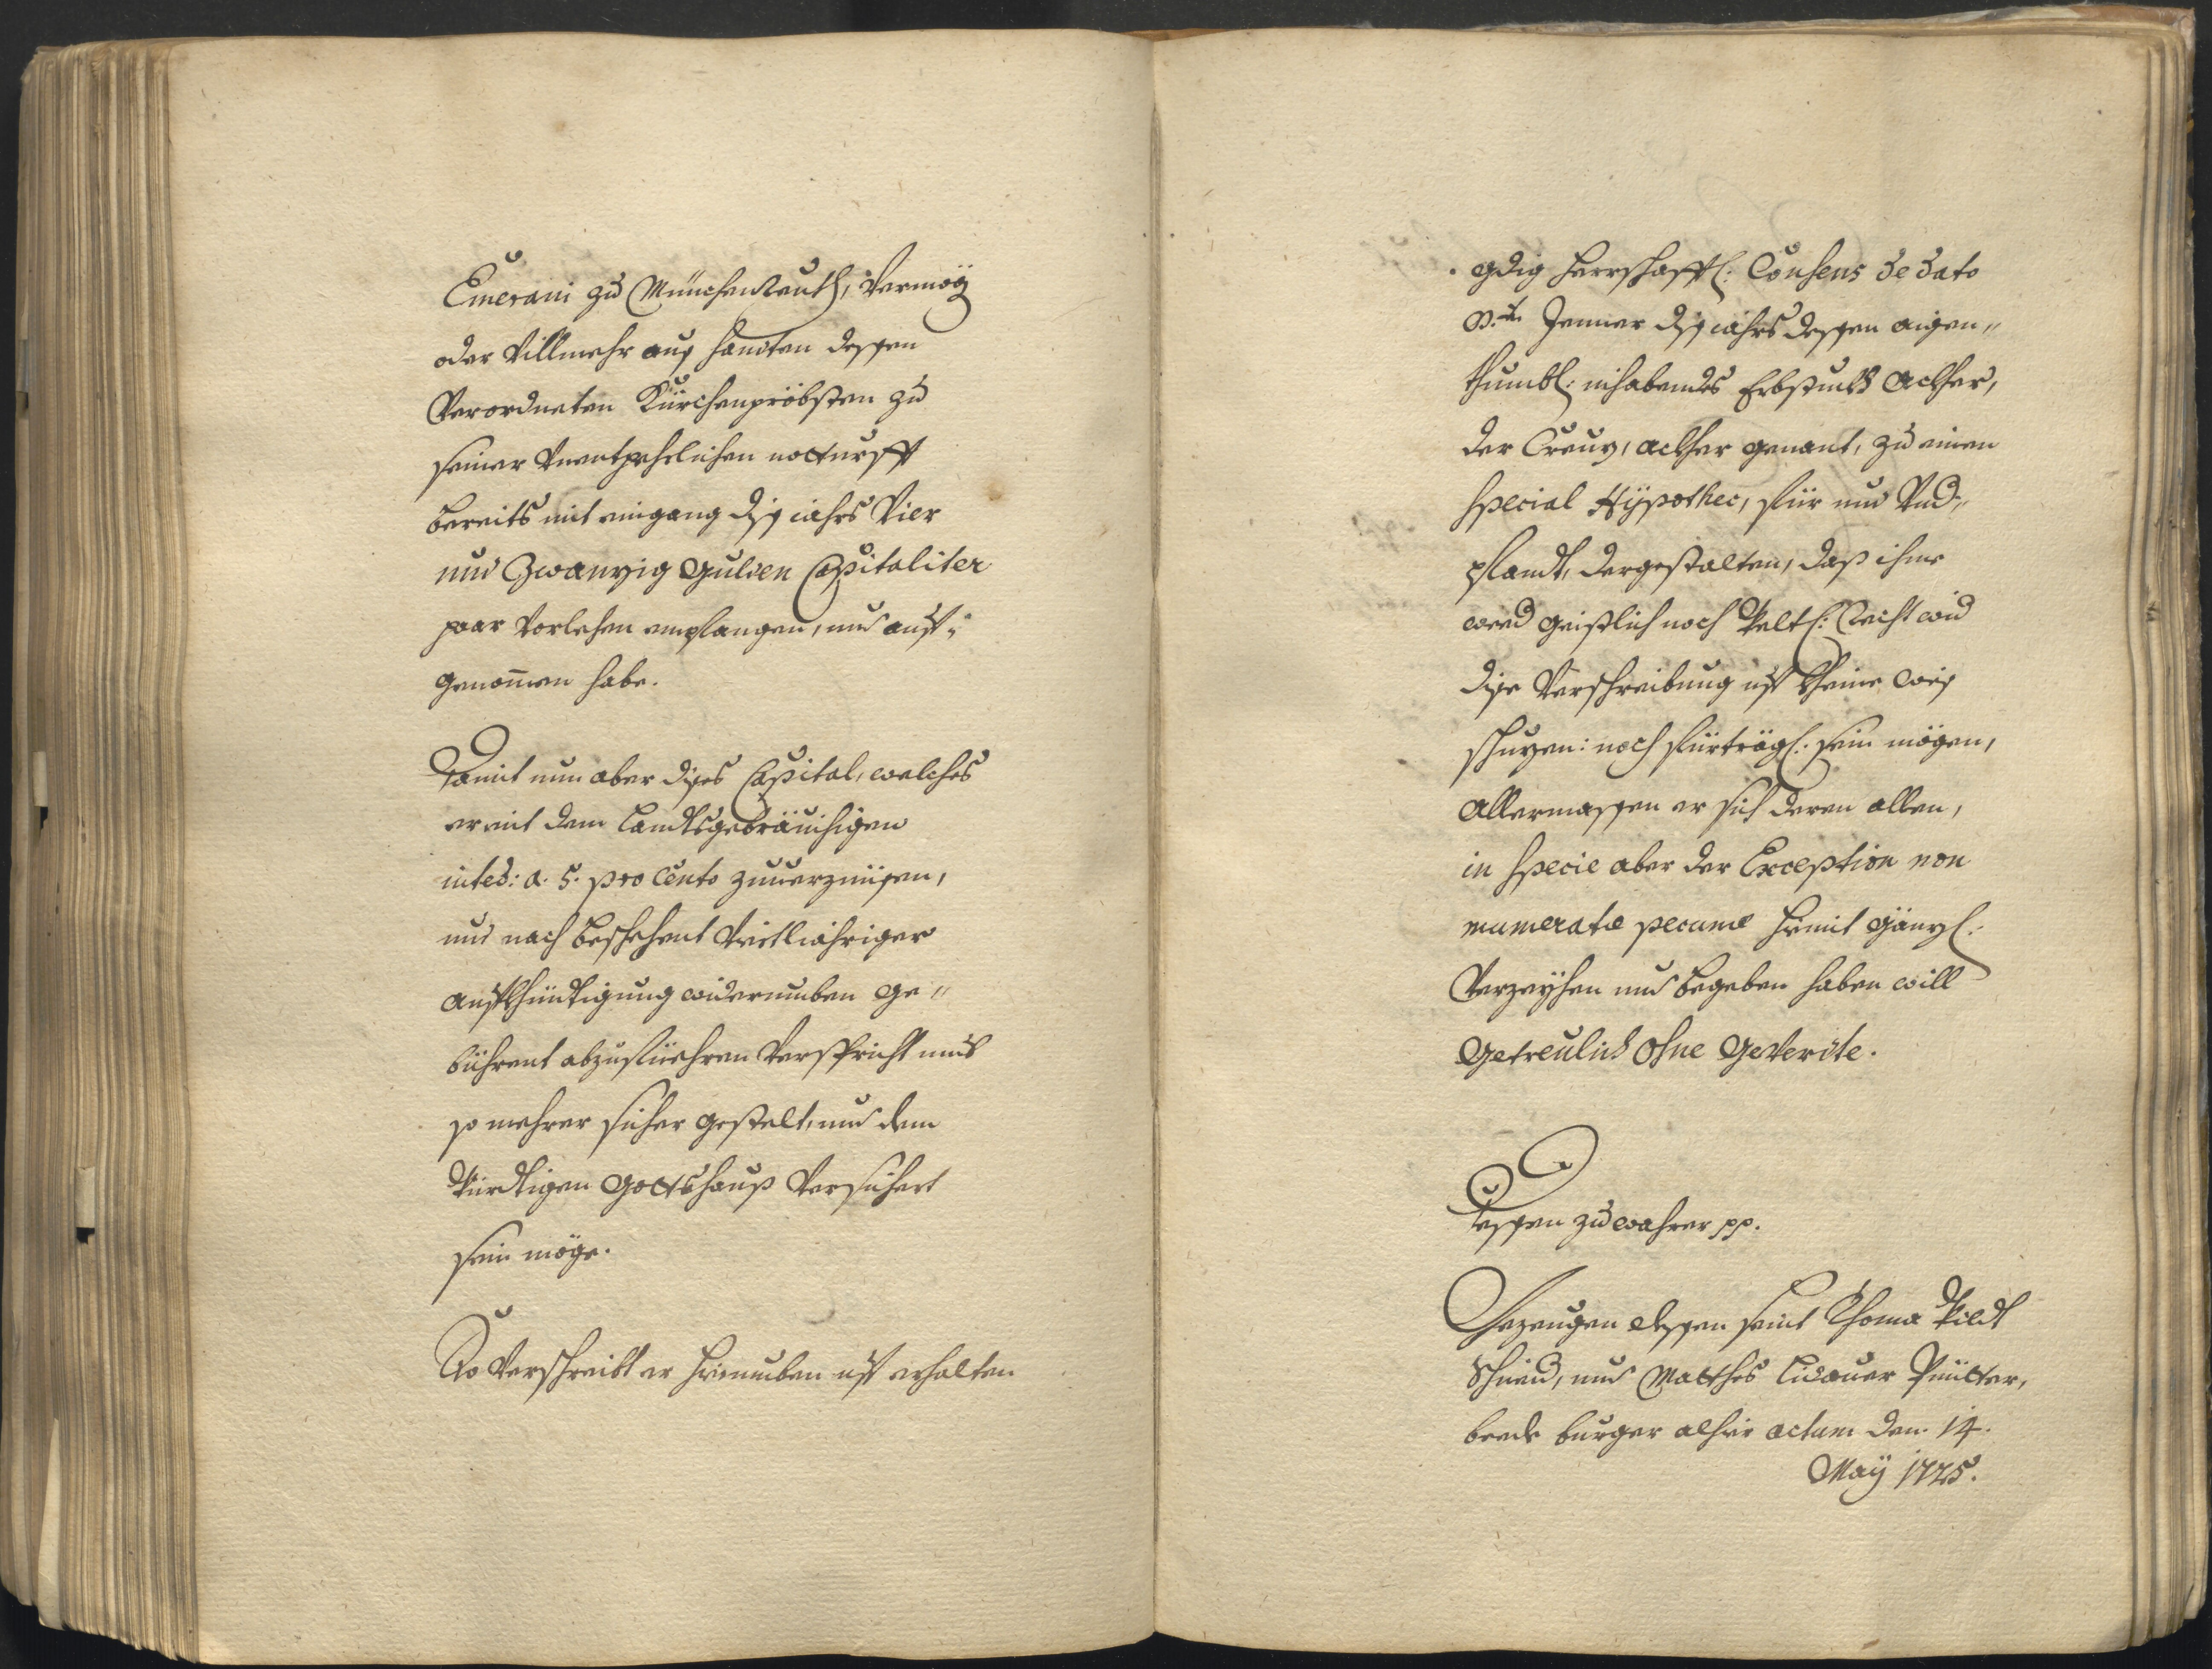 Emerani zu Münchenreuth, Vermög
oder Villmehr auß handten dessen
Verordneten Kürchenpröbsten zu
seiner Unentpehrlichen notturfft
bereits mit eingang diß iahrs Vier
und Zwanzig Gulden Capitaliter
paar Vorlehen empfangen, und auf¬
genom̅en habe.
Damit nun aber dises Capital, welches
er mit dem Landtsgebräuchigen
inteè: a. 5. pro Cento zuuerzinsen,
und nach beschehent Viertliähriger
aufkhündtigung widerumben ge„
bührent abzufüehren Verspricht umb
so mehrer sicher gestelt, und dem
Würdtigen Gottshauß Versichert
sein möge.
So Verschreibt er hierumben auf erhalten
gdig herrschafftl: Consens de dato
Jenner diß iahrs dessen aigen„
thumbl: inhabendes Erbstuckh Ackher,
der Creuz, ackher genant, zu einen
Special Hÿpothec, für und Und„
pfandt, dergestalten, daß ihme
wed geistlich noch Weltl: Recht wid
dise Verschreibung auf kheine weis
schuzen: noch fürträgl. sein mögen,
Allermassen er sich deren allen,
in Specie aber der Exception non
numeratæ pecuniæ hiemit gänzl:
Verzeÿhen und begeben haben will
Getreulich ohne Geverdte.
Dessen zu wahrer pp.
Gezeugen dessen seint Thoma Wildt
Schneid, und Matthes Lidauer Püttner,
beede burger alhier actum den 14.
Maÿ 1725.